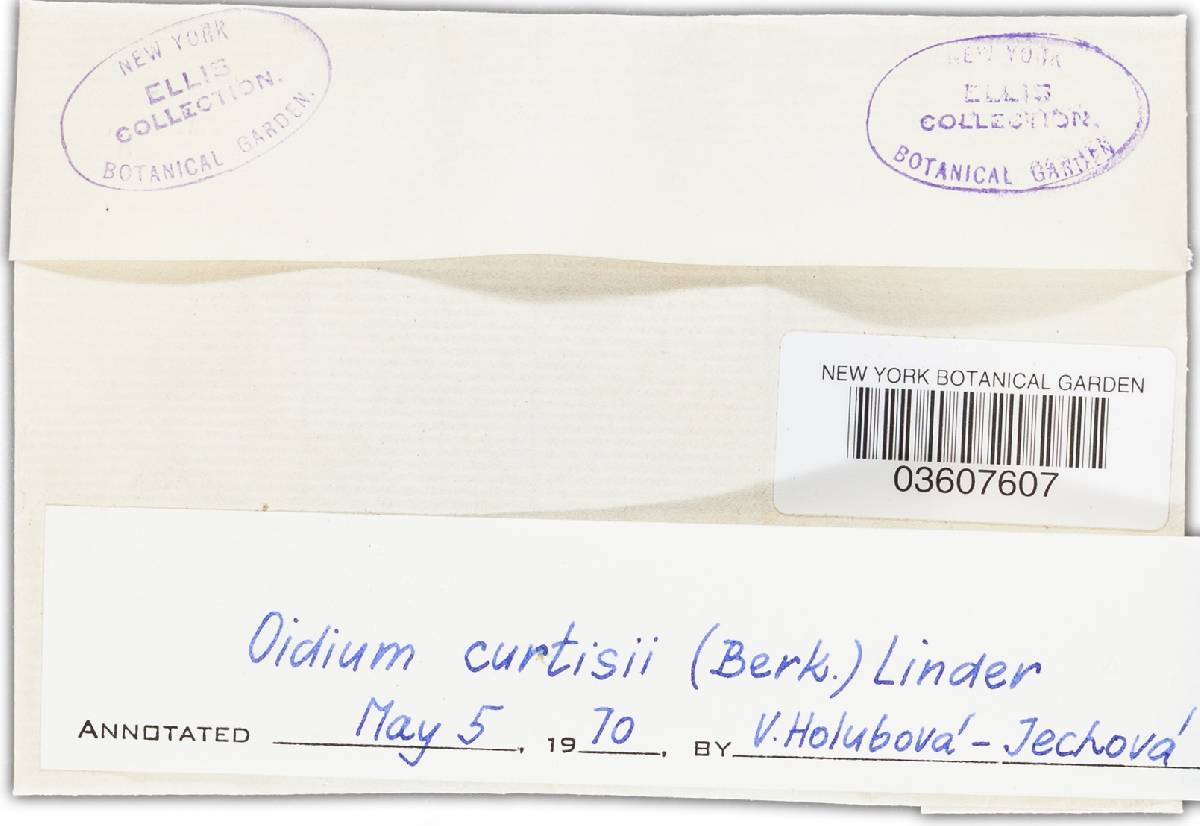 NEW YORK
ELLIS
COLLECTION.
BOTANICAL GARDEN.
NEW YORK
ELLIS
COLLECTION.
BOTANICAL GARDEN
NEW YORK BOTANICAL GARDEN
03607607
Oidium curtisii (Berk.) Linder
ANNOTATED May 5, 1970, BY V. Holubová-Jechová